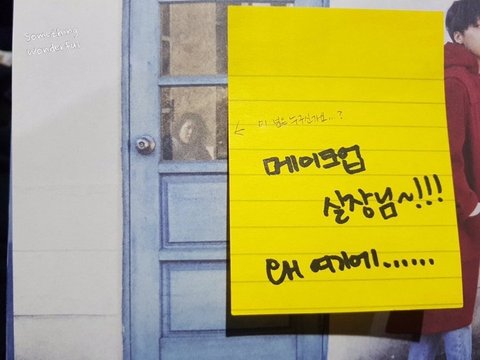 Something
Wonderful
← 이 분은 누구신가요..?
메이크업
실장님~!!!
왜 여기에......